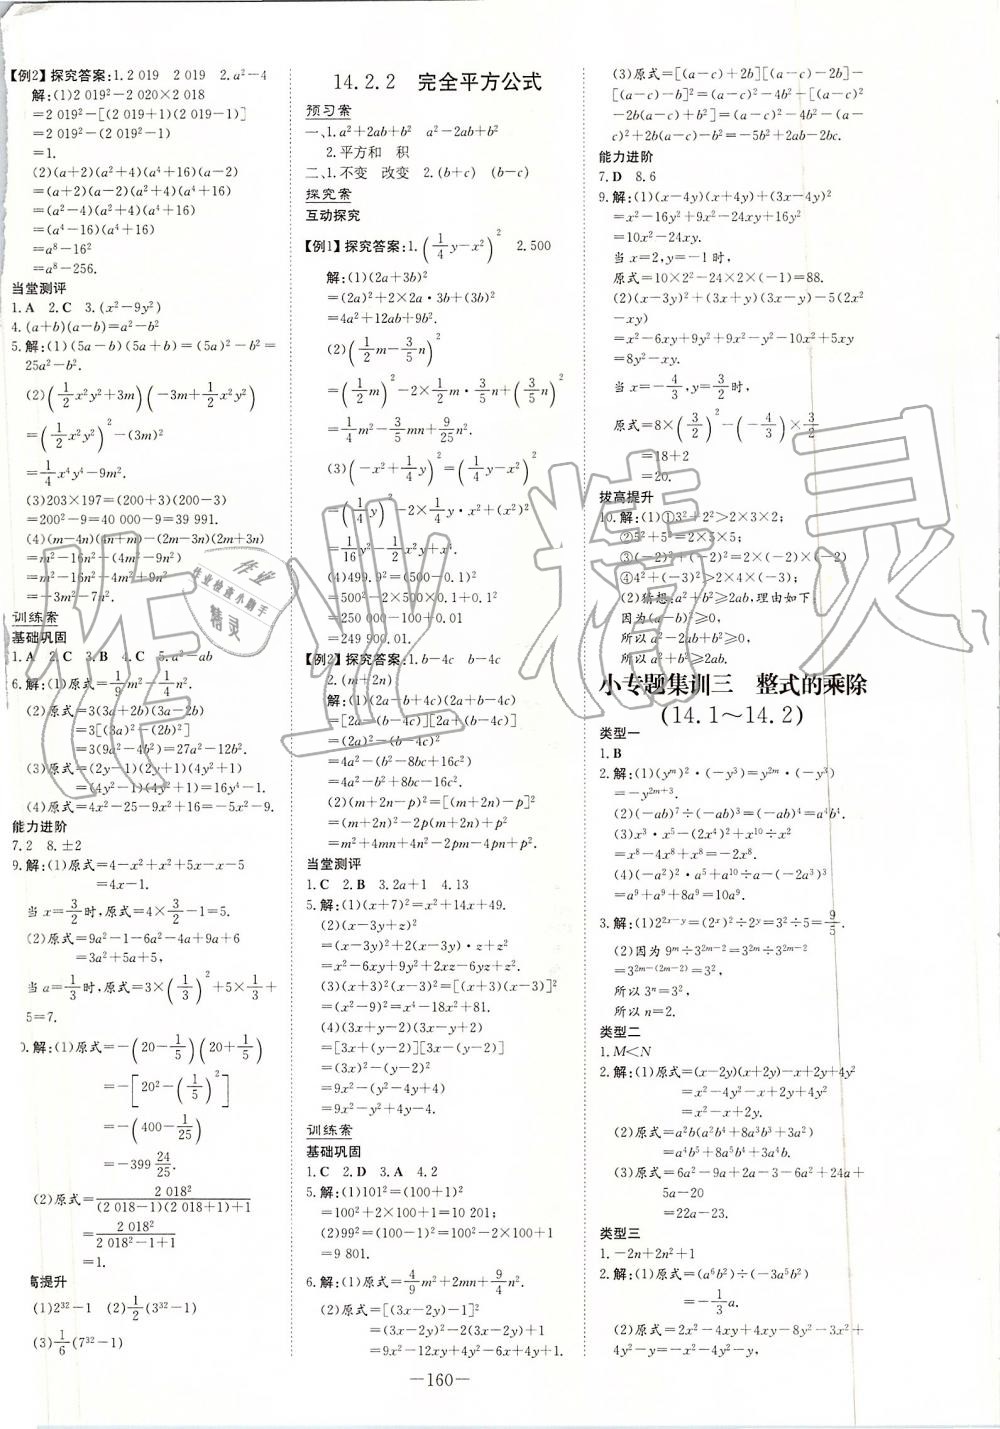 【例2】探究答案:1.2 019　2 019　2.a²-4
解:(1)2 019²-2 020×2 018
=2 019²-[(2 019+1)(2 019-1)]
=2 019²-(2 019²-1)
=1.
(2)(a+2)(a²+4)(a⁴+16)(a-2)
=(a+2)(a-2)(a²+4)(a⁴+16)
=(a²-4)(a²+4)(a⁴+16)
=(a⁴-16)(a⁴+16)
=a⁸-16²
=a⁸-256.
当堂测评
1.A　2.C　3.(x²-9y²)
4.(a+b)(a-b)=a²-b²
5.解:(1)(5a-b)(5a+b)=(5a)²-b²=
25a²-b².
(2)(1/2x²y²+3m)(-3m+1/2x²y²)
=(1/2x²y²)²-(3m)²
=1/4x⁴y⁴-9m².
(3)203×197=(200+3)(200-3)
=200²-9=40 000-9=39 991.
(4)(m-4n)(4n+m)-(2m-3n)(2m+3n)
=m²-16n²-(4m²-9n²)
=m²-16n²-4m²+9n²
=-3m²-7n².
训练案
基础巩固
1.A　2.C　3.B　4.C　5.a²-ab
6.解:(1)原式=1/9m²-1/4n².
(2)原式=3(3a+2b)(3a-2b)
=3[(3a)²-(2b)²]
=3(9a²-4b²)=27a²-12b².
(3)原式=(2y-1)(2y+1)(4y²+1)
=(4y²-1)(4y²+1)=16y⁴-1.
(4)原式=4x²-25-9x²+16=-5x²-9.
能力进阶
7.2　8.±2
9.解:(1)原式=4-x²+x²+5x-x-5
=4x-1.
当x=3/2时,原式=4×3/2-1=5.
(2)原式=9a²-1-6a²-4a+9a+6
=3a²+5a+5,
当a=1/3时,原式=3×(1/3)²+5×1/3+
5=7.
0.解:(1)原式=-(20-1/5)(20+1/5)
=-[20²-(1/5)²]
=-(400-1/25)
=-399 24/25.
(2)原式=2 018²/((2 018-1)(2 018+1)+1)
=2 018²/(2 018²-1+1)
=1.
高提升
(1)2³²-1　(2)1/2(3³²-1)
(3)1/6(7³²-1)
14.2.2　完全平方公式
预习案
一、1.a²+2ab+b²　a²-2ab+b²
2.平方和　积
二、1.不变　改变　2.(b+c)　(b-c)
探究案
互动探究
【例1】探究答案:1.(1/4y-x²)²　2.500
解:(1)(2a+3b)²
=(2a)²+2×2a·3b+(3b)²
=4a²+12ab+9b².
(2)(1/2m-3/5n)²
=(1/2m)²-2×1/2m·3/5n+(3/5n)²
=1/4m²-3/5mn+9/25n².
(3)(-x²+1/4y)²=(1/4y-x²)²
=(1/4y)²-2×1/4y·x²+(x²)²
=1/16y²-1/2x²y+x⁴.
(4)499.9²=(500-0.1)²
=500²-2×500×0.1+0.1²
=250 000-100+0.01
=249 900.01.
【例2】探究答案:1.b-4c　b-4c
2.(m+2n)
解:(1)(2a-b+4c)(2a+b-4c)
=[2a-(b-4c)][2a+(b-4c)]
=(2a)²-(b-4c)²
=4a²-(b²-8bc+16c²)
=4a²-b²+8bc-16c².
(2)(m+2n-p)²=[(m+2n)-p]²
=(m+2n)²-2p(m+2n)+p²
=m²+4mn+4n²-2pm-4pn+p²
当堂测评
1.C　2.B　3.2a+1　4.13
5.解:(1)(x+7)²=x²+14x+49.
(2)(x-3y+z)²
=(x-3y)²+2(x-3y)·z+z²
=x²-6xy+9y²+2xz-6yz+z².
(3)(x+3)²(x-3)²=[(x+3)(x-3)]²
=(x²-9)²=x⁴-18x²+81.
(4)(3x+y-2)(3x-y+2)
=[3x+(y-2)][3x-(y-2)]
=9x²-(y²-4y+4)
=9x²-y²+4y-4.
训练案
基础巩固
1.C　2.D　3.A　4.2
5.解:(1)101²=(100+1)²
=100²+2×100+1=10 201;
(2)99²=(100-1)²=100²-2×100+1
=9 801.
6.解:(1)原式=4/9m²+2mn+9/4n².
(2)原式=[(3x-2y)-1]²
=(3x-2y)²-2(3x-2y)+1
=9x²-12xy+4y²-6x+4y+1.
(3)原式=[(a-c)+2b][(a-c)-2b]-
[(a-c)-b]²=(a-c)²-4b²-(a-
c)²+2b(a-c)-b²=-5b²+2ab-2bc.
能力进阶
7.D　8.6
9.解:(1)(x-4y)(x+4y)+(3x-4y)²
=x²-16y²+9x²-24xy+16y²
=10x²-24xy.
当x=2,y=-1时,
原式=10×2²-24×2×(-1)=88.
(2)(x-3y)²+(3x+y)(3x-y)-5(2x²
-xy)
=x²-6xy+9y²+9x²-y²-10x²+5xy
=8y²-xy.
当x=-4/3,y=3/2时,
原式=8×(3/2)²-(-4/3)×3/2
=18+2
=20.
拔高提升
10.解:(1)①3²+2²>2×3×2;
②5²+5²=2×5×5;
③(-2)²+(-2)²=2×(-2)×(-2);
④4²+(-3)²>2×4×(-3).
(2)猜想:a²+b²≥2ab,理由如下:
因为(a-b)²≥0,
所以a²-2ab+b²≥0,
所以a²+b²≥2ab.
小专题集训三　整式的乘除
(14.1～14.2)
类型一
1.B
2.解:(1)(yᵐ)²·(-y³)=y²ᵐ·(-y³)
=-y²ᵐ⁺³.
(2)(-ab)⁷÷(-ab)³=(-ab)⁴=a⁴b⁴.
(3)x³·x⁵-(2x⁴)²+x¹⁰÷x²
=x⁸-4x⁸+x⁸=-2x⁸.
(4)(-a²)²·a⁵+a¹⁰÷a-(-2a³)³
=a⁹+a⁹+8a⁹=10a⁹.
3.解:(1)2²ˣ⁻ʸ=(2ˣ)²÷2ʸ=3²÷5=9/5.
(2)因为9ᵐ÷3²ᵐ⁻²=3²ᵐ÷3²ᵐ⁻²
=3²ᵐ⁻⁽²ᵐ⁻²⁾=3²,
所以3ⁿ=3²,
所以n=2.
类型二
1.M<N
2.解:(1)原式=(x-2y)(x+2y)-x+2y+4y²
=x²-4y²-x+2y+4y²
=x²-x+2y.
(2)原式=a²b(a²b⁴+8a³b³+3a²)
=a⁴b⁵+8a⁵b⁴+3a⁴b.
(3)原式=6a²-9a+2a-3-6a²+24a+
5a-20
=22a-23.
类型三
1.-2n+2n²+1
2.解:(1)原式=(a⁶b²)÷(-3a⁵b²)
=-1/3a.
(2)原式=2x²-4xy+4xy-8y²-3x²+
4y²-y=-x²-4y²-y,
—160—
作业精灵
作业
作业检查小助手
精灵